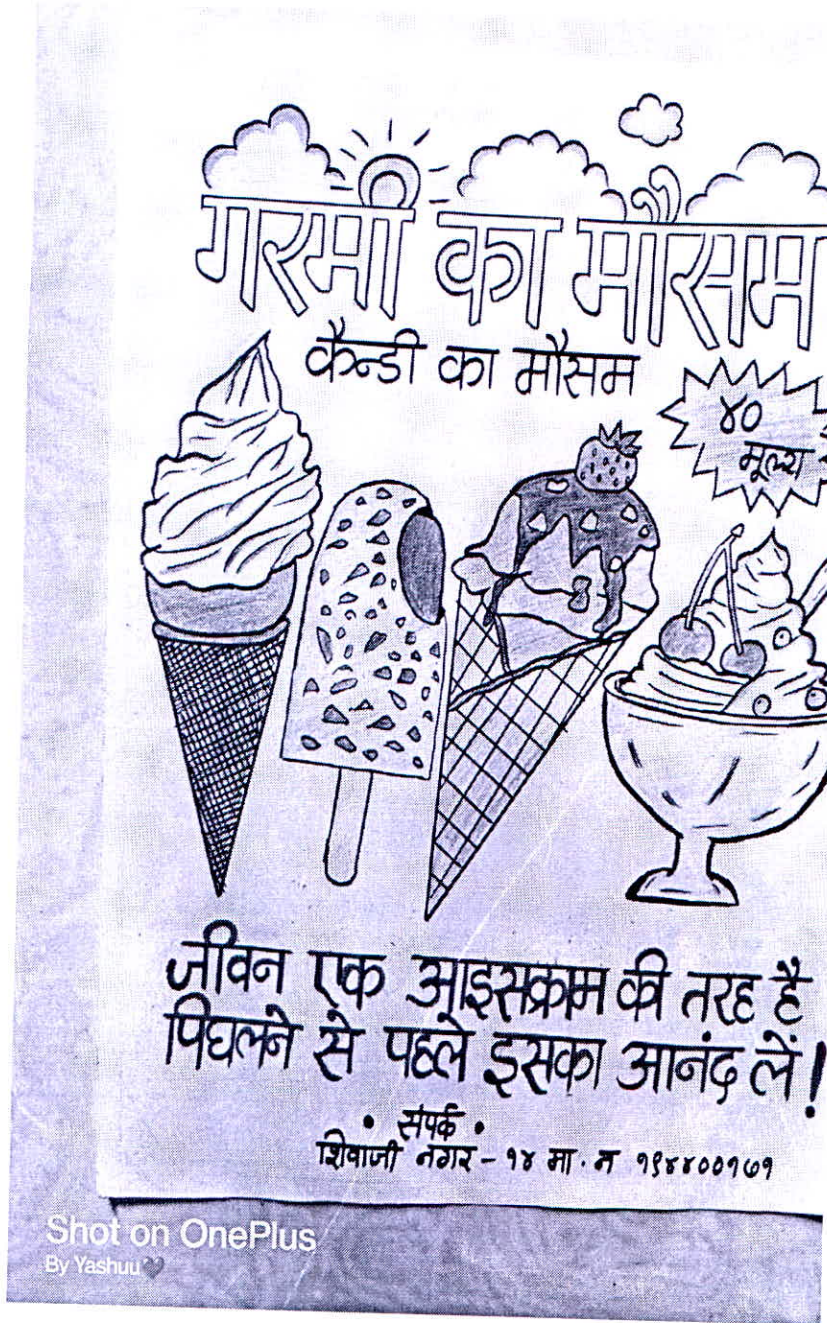 गरमी का मौसम
कैन्डी का मौसम
४०
मूल्य
जीवन एक आइसक्राम की तरह है
पिघलने से पहले इसका आनंद लें!
• संपर्क •
शिवाजी नगर - १४ मा. न १९४४००१७१
Shot on OnePlus
By Yashuu